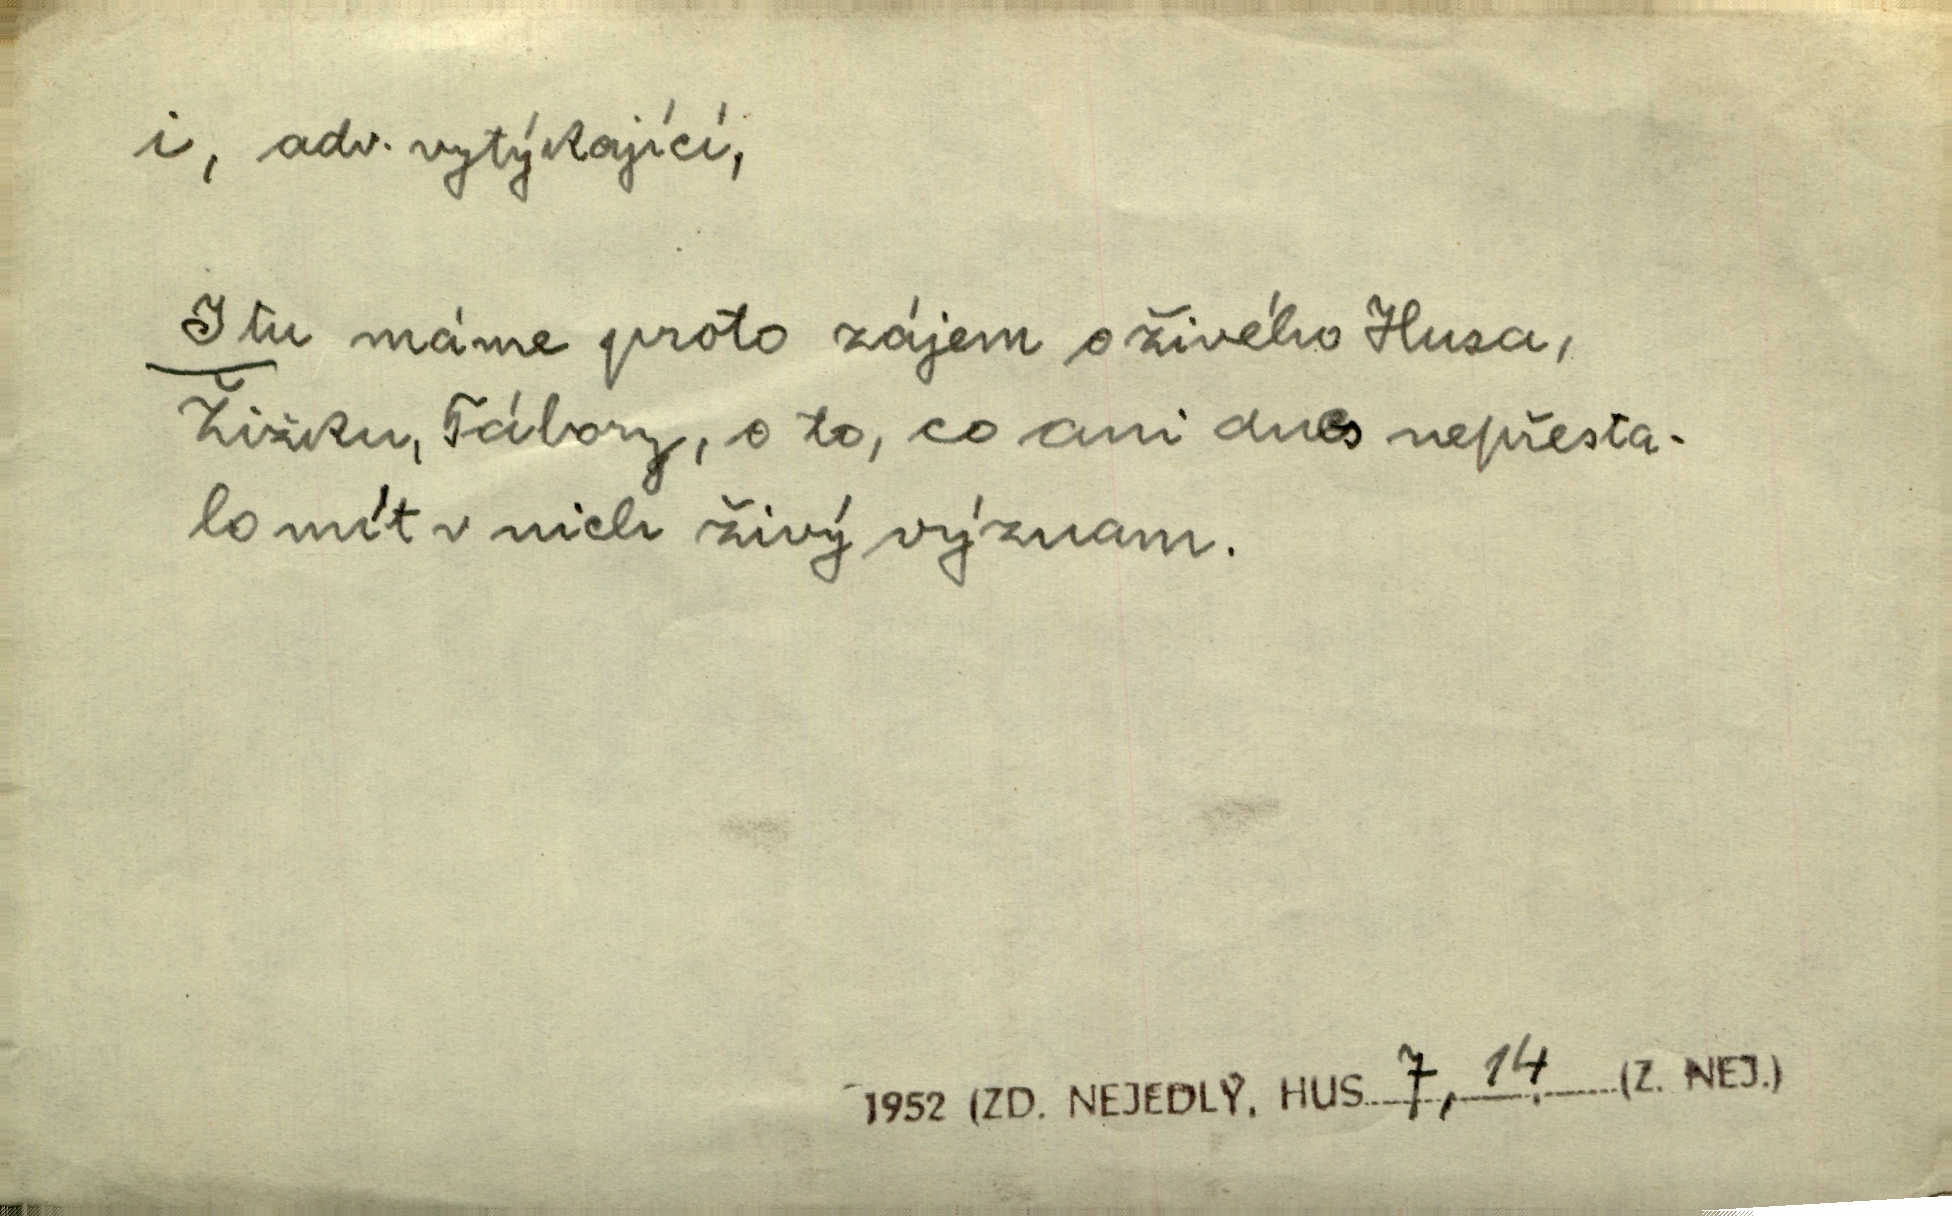 i, adv. vytýkající,
I tu máme proto zájem o živého Husa,
Žižku, Tábory, o to, co ani dnes nepřesta-
lo mít v nich živý význam.
1952 (ZD. NEJEDLÝ, HUS 7, 14. (Z. NEJ.)